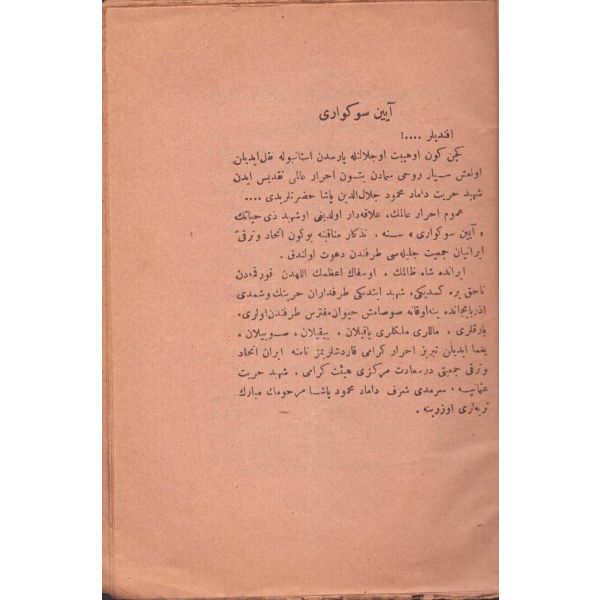 آیین سوکواری
افندیلر ....!
کچن کون اوهیبت اوجلالتله پارسدن استانبوله نقل ایدیلن
اولمش سیار روحی سمادن بتون احرار عالمی تقدیس ایدن
شهید حریت داماد محمود جلال‌الدین پاشا حضرتلریدی ....
عموم احرار عالمك، علاقه‌دار اولدیغی اوشهید ذی حیاتك
« آیین سوکواری » سنه ، تذکار مناقبنه بوکون اتحاد وترقیٔ
ایرانیان جمعیت جلیله‌سی طرفندن دعوت اولندق .
ایرانده شاه ظالمك ، اوسفاك اعظمك اللهدن قورقمه‌دن
ناحق یره کسدیکی، شهید ایتدیکی طرفداران حریتك وشمدی
اذربایجانده ینه اوقانه صوصامش حیوان مفترس طرفندن اولری،
یارقلری ، ماللری ملکلری یاقیلان ، ییقیلان ، صویلان ،
یغما ایدیلن تبریز احرار کرامی قارداشلریمز نامنه ایران اتحاد
وترقی جمعیتی درسعادت مرکزی هیئت کرامی ، شهید حریت
عثمانیه ، سرمدی شرف داماد محمود پاشا مرحومك مبارك
تربه‌لری اوزرینه .